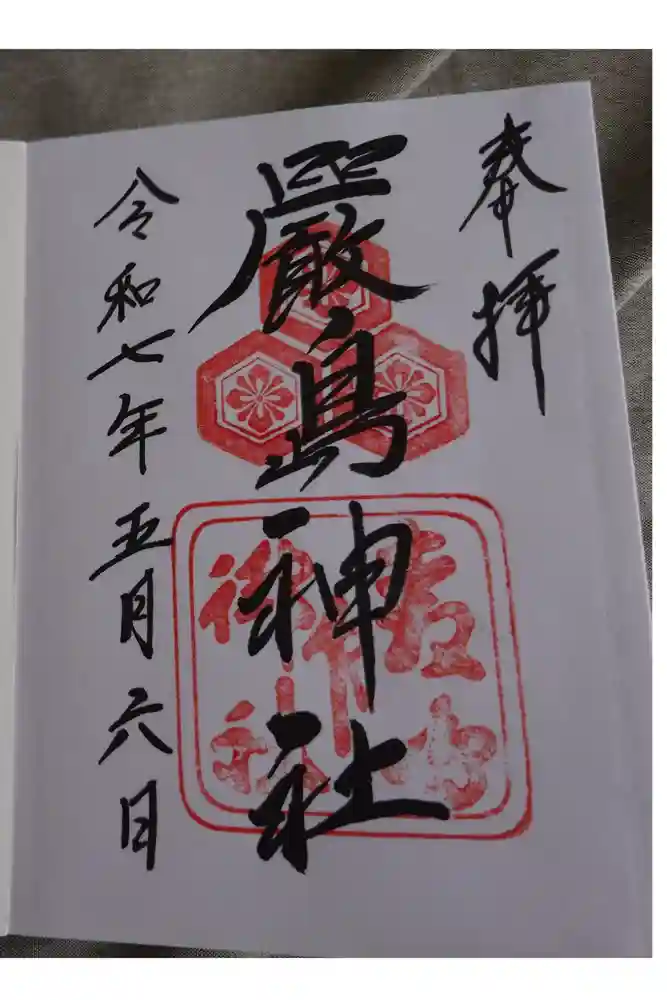 奉拝
嚴島神社
令和七年五月六日